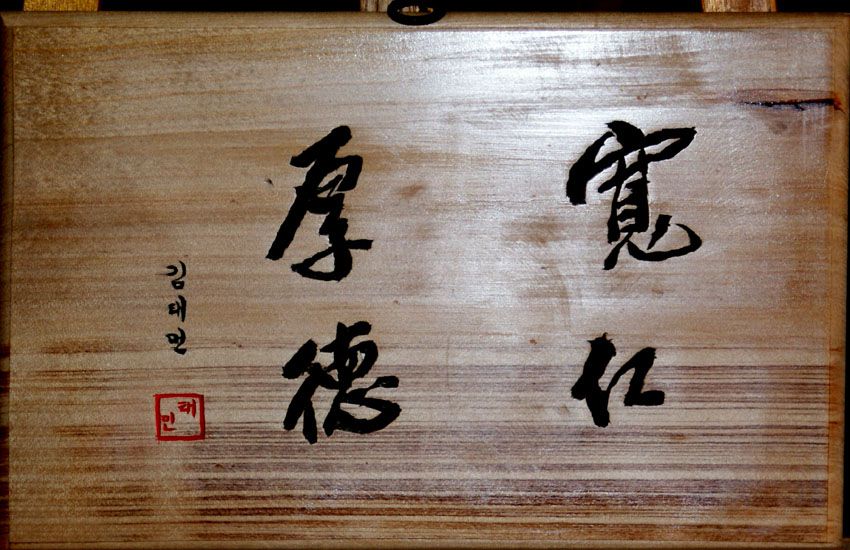 寬仁
厚德
김태민
태민